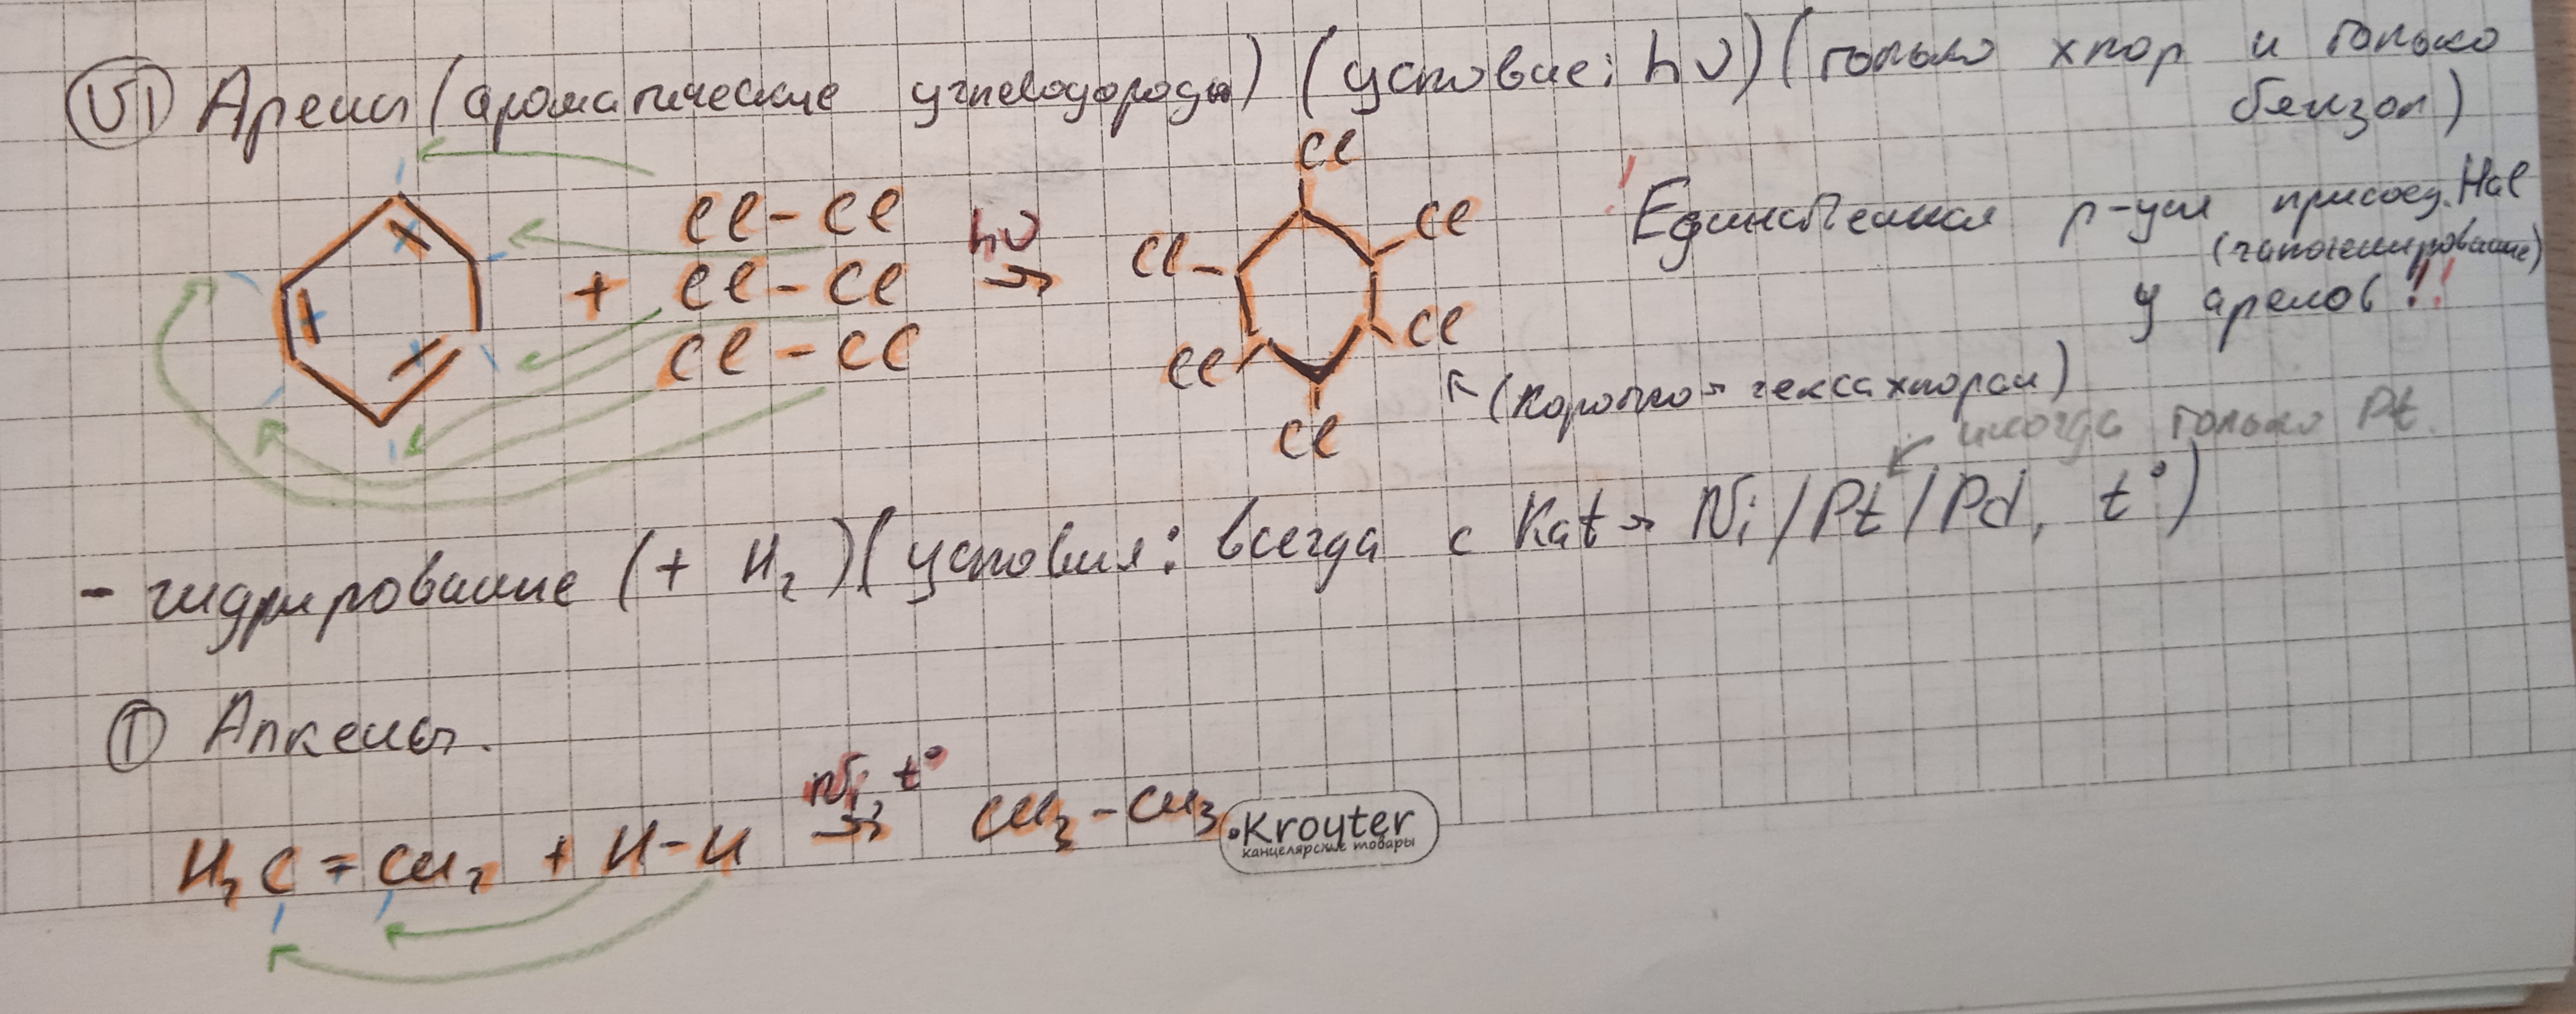 VI Арены (ароматические углеводороды) (условие: hν) (только хлор и только
бензол)
Cl
Cl-Cl
+ Cl-Cl
Cl-Cl
hν
→
Cl
Cl-
Cl
Cl
Cl
! Единственная р-ция присоед. Hal
(галогенирование)
у аренов!!
(коротко → гексахлоран)
иногда только Pt.
- гидрирование (+ H₂) (условия: всегда с Kat → Ni/Pt/Pd, t°)
I Алкены.
Ni, t°
H₂C=CH₂ + H-H → CH₃-CH₃.
Kroyter
канцелярские товары